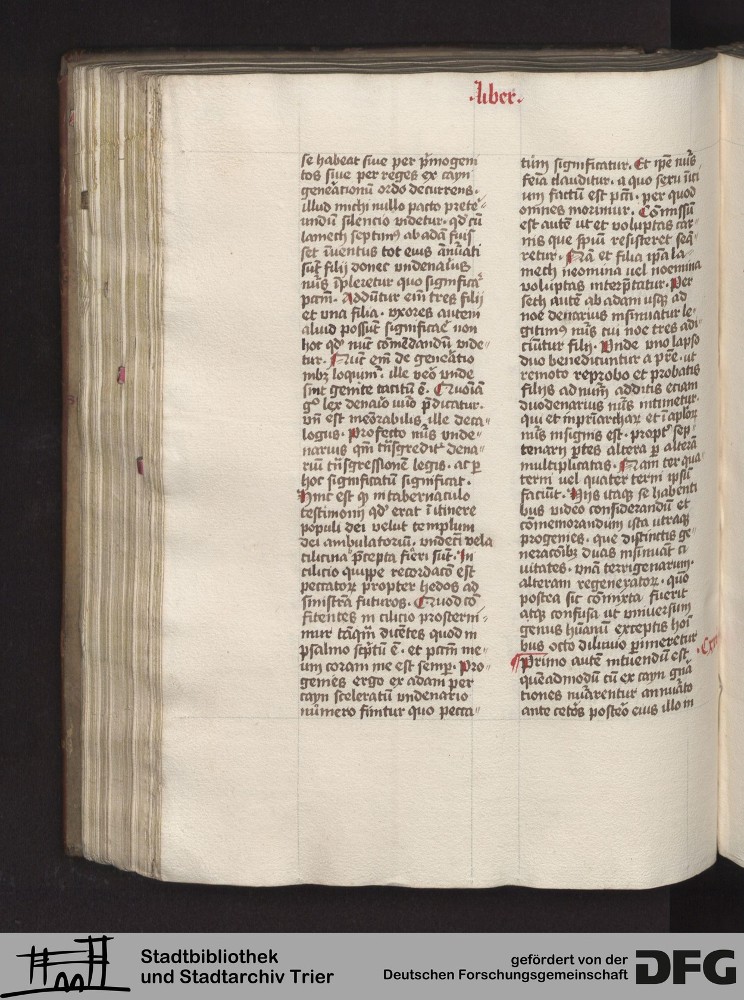 ·liber·
se habeat siue per pͥmogeni
tos siue per reges ex cayn
geneãtionũ ordo decurrens·
illud michi nullo pacto prete
undũ silencio uidetur· qd cũ
lamech septimꝰ ab adã fuiſ
set ĩuentus tot eius añũati
sũt filij donec undenariꝰ
nũs ĩpleretur quo significãt̃
pctm̃· Addũtur em̃ tres filij
et vna filia· vxores autem
aliud possũt significaẽ non
hoc qd' nũc com̃dandũ uide
tur· Nũc em̃ de geneãtio
nibꝫ loquim̃· ille ṽo unde
sint genite tacitũ ẽ· Quoniã
gͦ lex denaͥo nũo p̃dicatur·
vñ est meorabilis ille deca
logus· Profecto nũs unde
narius qm̃ tñsgredit̃ dena
riũ tñsgressionẽ legis· ac ꝑ
hoc significatũ significat·
Hinc est qͥ in tabernaculo
testimonij qd' erat ĩ itinere
populi dei velut templum
dei ambulatoriũ· undecĩ vela
cilicina p̃cepta fieri sũt· In
cilicio quippe recordacͦ est
peccatoꝝ propter hedos ad
sinistrã futuros· Quod cõ
fitentes in cilicio prosterni
mur tãqm̃ dicẽtes quod in
psalmo sc̃ptũ ẽ· et pctm̃ me
um coram me est semp̲· Pro
genies ergo ex adam per
cayn sceleratũ undenario
nũmero finitur quo pecca
tum significatur· Et ip̃e nũs
feĩa clauditur· a quo sexu ĩiti
um factũ est pcti· per quod
omnes morimur· Cõmissũ
est autẽ ut et uoluptas car
nis que sp̃ui resisteret seq̃
retur· Nã et filia ip̃a la
mech neomina uel noemina
voluptas interp̃tatur· Per
seth autẽ ab adam usqꝫ ad
noe denarius insinuatur le
gitimꝰ nũs cui noe tres adi
ciũtur filij· Unde vno lapso
duo benedicuntur a pr̃e· ut
remoto reprobo et probatis
filijs ad nũm̃ additis eciam
duodenarius nũs intimetur·
qui et in pr̃iarchaꝝ et ĩ apl'oꝝ
nũs insignis est· propt̃ sep
tenarij p̲tes alterã ꝑ alterã
multiplicatas· Nam ter qua
terni uel quater terni ipsũ
faciũt· Hijs itaqꝫ se habenti
bus video considerandũ et
cõmemorandum ista utraqꝫ
progenies· que distinctis ge
neracoibꝫ duas insinuãt ci
uitates· vnã terrigenarum·
alteram regeneratoꝝ· quõ
postea sic cõmixta fuerit
atqꝫ confusa ut vniuersum
genus huãnũ exceptis hoĩ
bus octo diluuio p̲imeretur
¶Primo autẽ intuendũ est
quẽadmodũ cũ ex cayn gñã
tiones nũarentur annũato
ante cetõs posteõ eius illo in
Stadtbibliothek
und Stadtarchiv Trier
gefördert von der
Deutschen Forschungsgemeinschaft
DFG